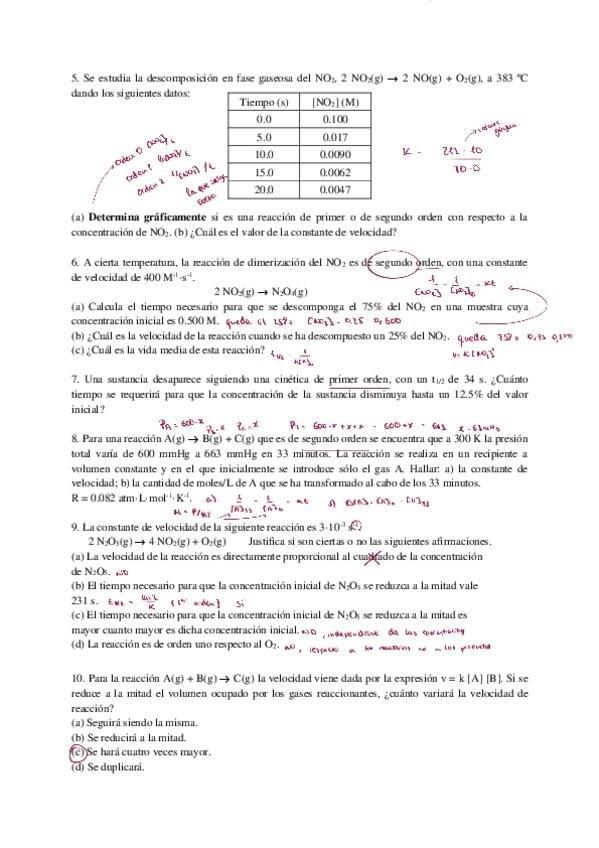 5. Se estudia la descomposición en fase gaseosa del NO₂, 2 NO₂(g) → 2 NO(g) + O₂(g), a 383 ºC
dando los siguientes datos:
Tiempo (s) [NO₂] (M)
0.0 0.100
5.0 0.017
10.0 0.0090
15.0 0.0062
20.0 0.0047
orden 0 [NO₂]/t
orden 1
orden 2
la que salga
recta
K =
212 - 10
20-0
(a) Determina gráficamente si es una reacción de primer o de segundo orden con respecto a la
concentración de NO₂. (b) ¿Cuál es el valor de la constante de velocidad?
6. A cierta temperatura, la reacción de dimerización del NO₂ es de segundo orden, con una constante
de velocidad de 400 M⁻¹·s⁻¹.
2 NO₂(g) → N₂O₄(g)
(a) Calcula el tiempo necesario para que se descomponga el 75% del NO₂ en una muestra cuya
concentración inicial es 0.500 M. queda el 25% [NO₂] = 0.25 · 0,500
(b) ¿Cuál es la velocidad de la reacción cuando se ha descompuesto un 25% del NO₂. queda 75% 0,75 · 0,500
(c) ¿Cuál es la vida media de esta reacción?
7. Una sustancia desaparece siguiendo una cinética de primer orden, con un t₁/₂ de 34 s. ¿Cuánto
tiempo se requerirá para que la concentración de la sustancia disminuya hasta un 12.5% del valor
inicial?
8. Para una reacción A(g) → B(g) + C(g) que es de segundo orden se encuentra que a 300 K la presión
total varía de 600 mmHg a 663 mmHg en 33 minutos. La reacción se realiza en un recipiente a
volumen constante y en el que inicialmente se introduce sólo el gas A. Hallar: a) la constante de
velocidad; b) la cantidad de moles/L de A que se ha transformado al cabo de los 33 minutos.
R = 0.082 atm·L·mol⁻¹·K⁻¹.
9. La constante de velocidad de la siguiente reacción es 3·10⁻³ s⁻¹.
2 N₂O₅(g) → 4 NO₂(g) + O₂(g) Justifica si son ciertas o no las siguientes afirmaciones.
(a) La velocidad de la reacción es directamente proporcional al cuadrado de la concentración
de N₂O₅. NO
(b) El tiempo necesario para que la concentración inicial de N₂O₅ se reduzca a la mitad vale
231 s. (1er orden) si
(c) El tiempo necesario para que la concentración inicial de N₂O₅ se reduzca a la mitad es
mayor cuanto mayor es dicha concentración inicial. NO, independiente de las
(d) La reacción es de orden uno respecto al O₂. NO, respecto a los reactivos no a los productos
10. Para la reacción A(g) + B(g) → C(g) la velocidad viene dada por la expresión v = k [A] [B]. Si se
reduce a la mitad el volumen ocupado por los gases reaccionantes, ¿cuánto variará la velocidad de
reacción?
(a) Seguirá siendo la misma.
(b) Se reducirá a la mitad.
(c) Se hará cuatro veces mayor.
(d) Se duplicará.